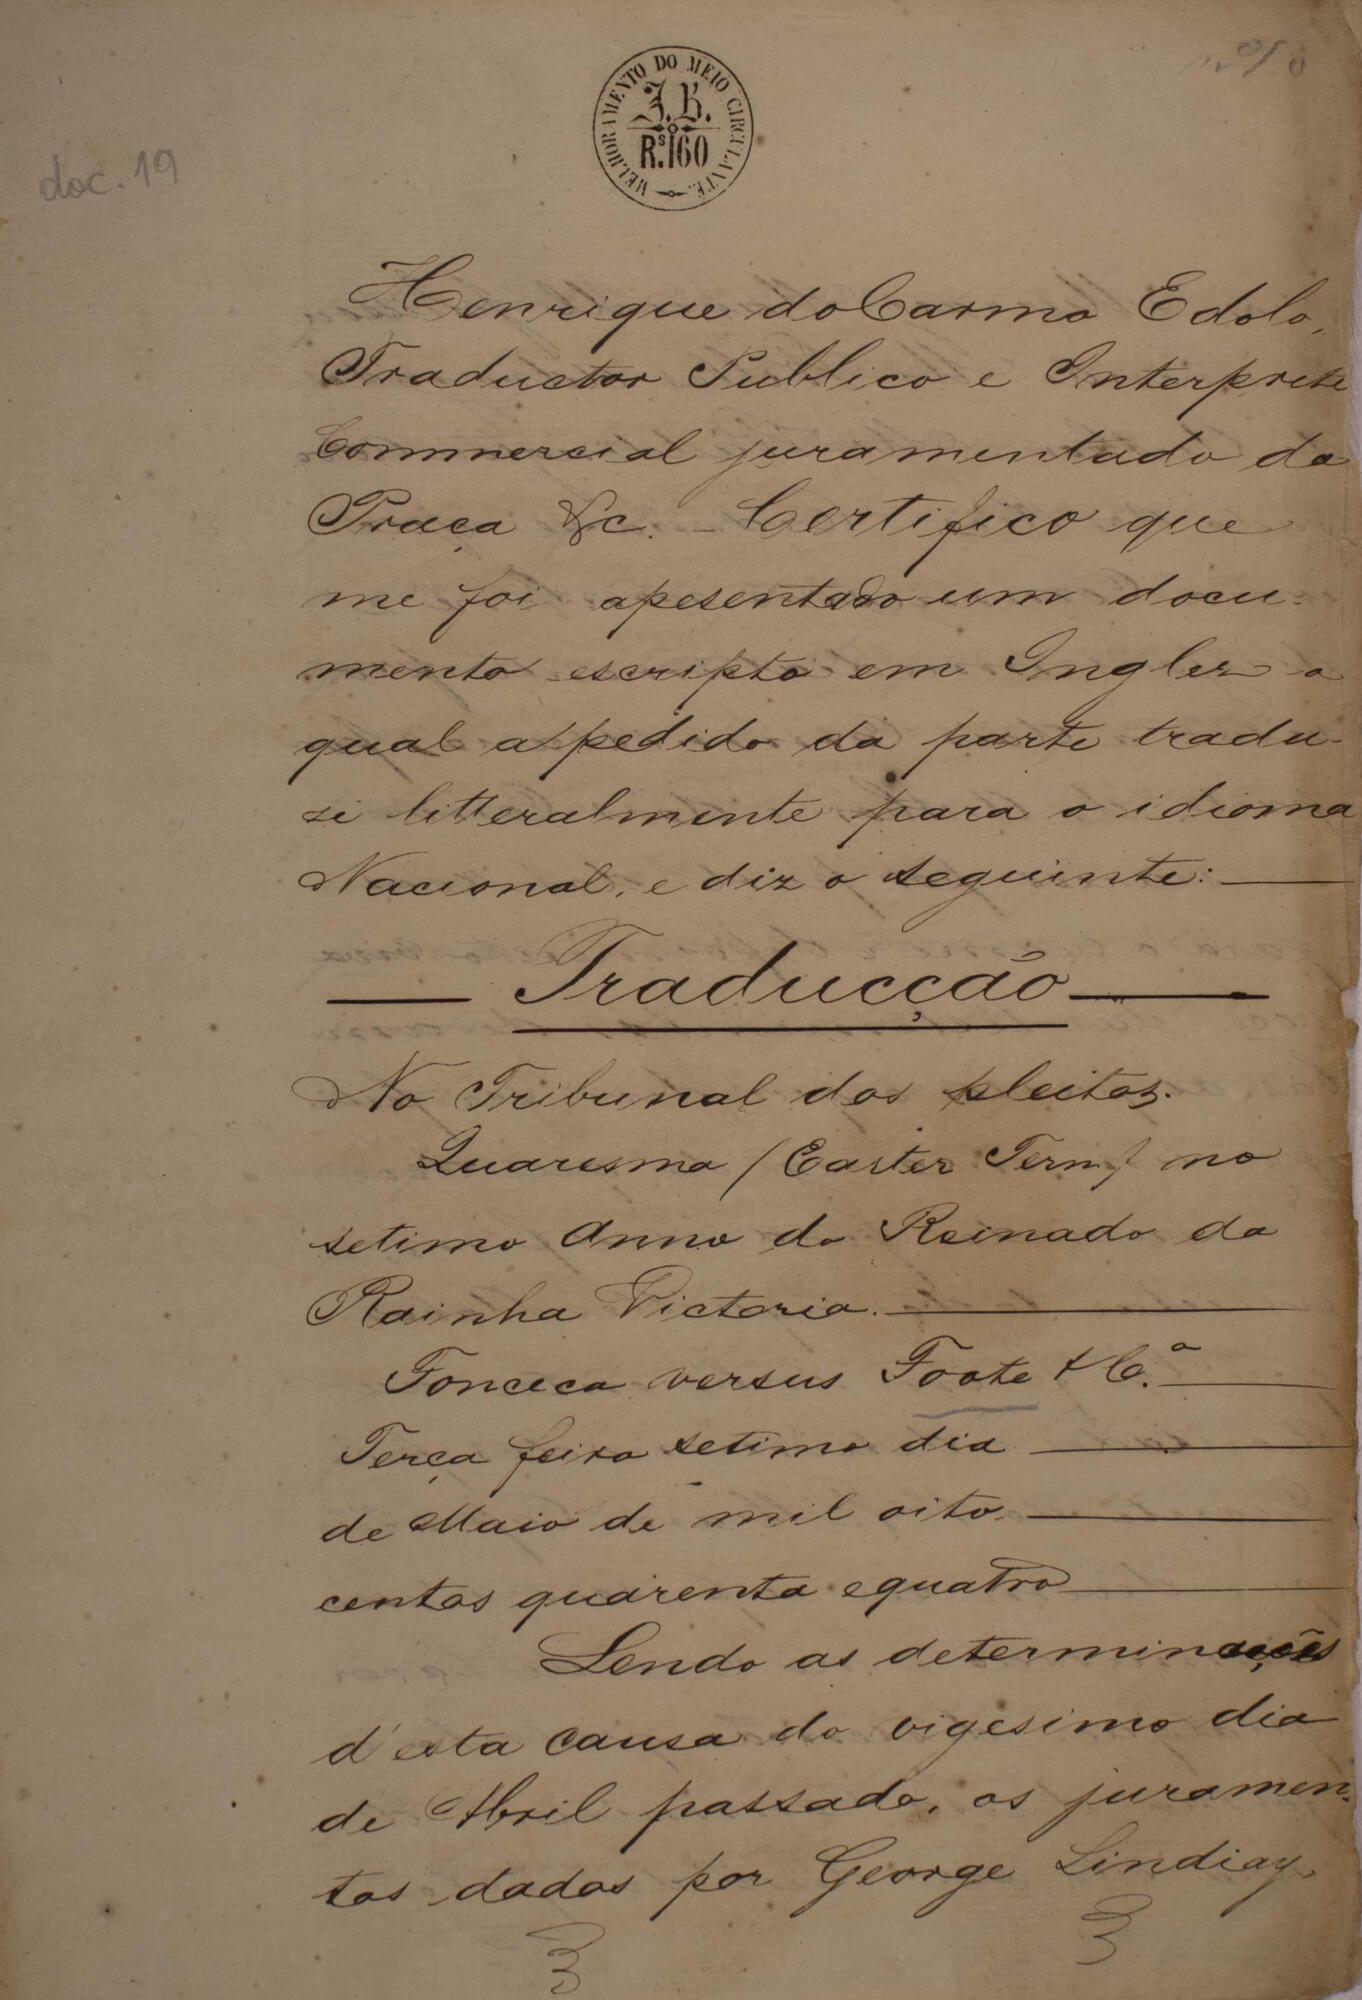 MELHORAMENTO DO MEIO CIRCULANTE.
I. B.
Rs. 160
doc. 19
Henrique do Carmo Edolo,
Traductor Publico e Interprete
Commercial juramentado da
Praça &c. – Certifico que
me foi apesentado um docu-
mento escripto em Inglez o
qual a pedido da parte tradu-
zi litteralmente para o idioma
Nacional, e diz o seguinte:
Traducção
No Tribunal dos pleitos.
Quaresma (Easter Term) no
setimo Anno do Reinado da
Rainha Victoria.
Fonceca versus Foote & C.ª
Terça feira setimo dia
de Maio de mil oito
centos quarenta e quatro
Lendo as determinações
d'esta causa do vigesimo dia
de Abril passado, os juramen-
tos dados por George Lindiay,